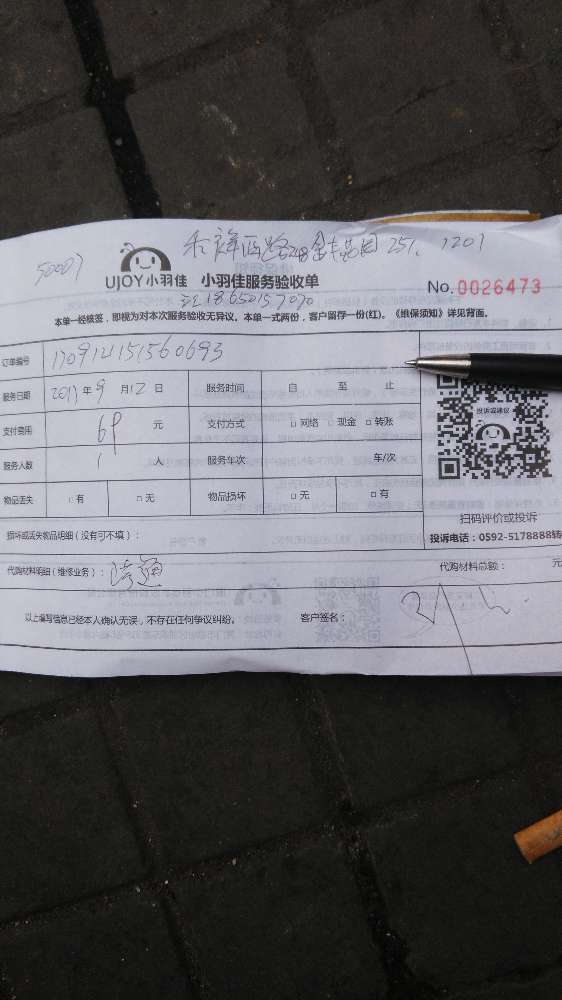 禾祥西路248金丰花园251、1201
50007
UJOY小羽佳 小羽佳服务验收单
No.0026473
江18650157070
本单一经核签，即视为对本次服务验收无异议。本单一式两份，客户留存一份(红)。《维保须知》详见背面。
订单编号 170912151560693
服务日期 2017年9月12日 服务时间 自 至 止
支付费用 68元 支付方式 □网络 现金 □转账
服务人数 1人 服务车次 车/次
物品丢失 □有 □无 物品损坏 □无 □有
投诉或建议
扫码评价或投诉
投诉电话：0592-5178888转
损坏或丢失物品明细（没有可不填）：
代购材料明细（维修业务）： 代购材料总额： 元
以上填写信息已经本人确认无误，不存在任何争议纠纷。 客户签名：